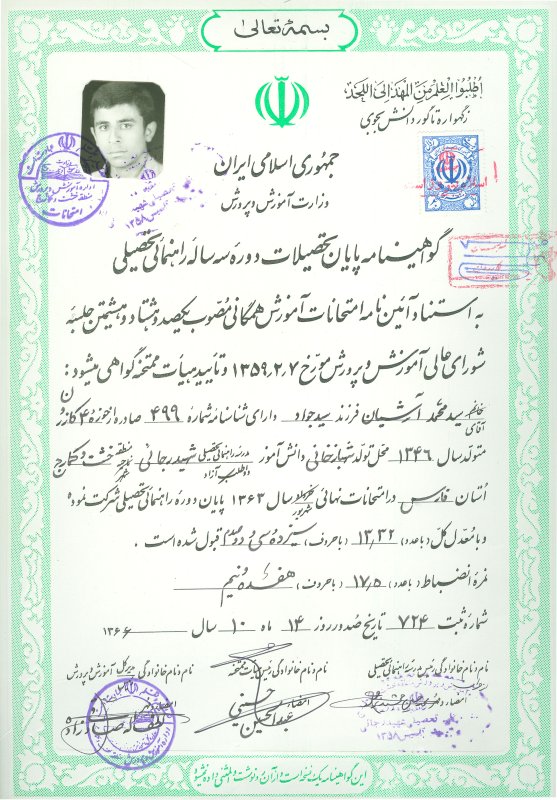 بسمه تعالی
اُطلُبُوا العِلمَ مِنَ المَهدِ اِلَی اللَّحَد
زگهواره تا گور دانش بجوی
جمهوری اسلامی ایران
وزارت آموزش و پرورش
گواهینامه پایان تحصیلات دوره سه ساله راهنمائی تحصیلی
به استناد آئین نامه امتحانات آموزش همگانی مصوب یکصد و هشتاد و هشتمین جلسه
شورای عالی آموزش و پرورش مورخ ۱۳۵۹٫۲٫۷ و تأیید هیأت ممتحنه گواهی میشود:
آقای سید محمد آرشیان فرزند سید جواد دارای شناسنامه شماره ۴۹۹ صادره از حوزه ۴ کازرون
متولد سال ۱۳۴۶ محل تولد شهباز خانی دانش آموز مدرسه راهنمائی تحصیلی شهید رجائی منطقه خشت و کمارج
داوطلب آزاد
استان فارس در امتحانات نهائی خرداد سال ۱۳۶۳ پایان دوره راهنمائی تحصیلی شرکت نموده
شهریور
و با معدل کل (با عدد) ۱۳٫۳۲ (با حروف) سیزده سی و دو صدم قبول شده است.
نمره انضباط (با عدد) ۱۷٫۵ (با حروف) هفده و نیم
شماره ثبت ۷۲۴ تاریخ صدور روز ۱۴ ماه ۱۰ سال ۱۳۶۶
نام و نام خانوادگی رئیس مدرسه راهنمائی تحصیلی
نام و نام خانوادگی رئیس هیأت ممتحنه
نام و نام خانوادگی مدیر کل آموزش و پرورش
امضاء
امضاء
عبدالحسین حسینی
این گواهینامه یک نسخه است و از آن رونوشت و المثنی داده نمیشود